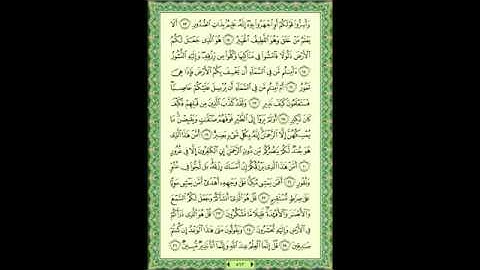 وَأَسِرُّوا۟ قَوْلَكُمْ أَوِ ٱجْهَرُوا۟ بِهِۦٓ إِنَّهُۥ عَلِيمٌۢ بِذَاتِ ٱلصُّدُورِ ١٣ أَلَا
يَعْلَمُ مَنْ خَلَقَ وَهُوَ ٱللَّطِيفُ ٱلْخَبِيرُ ١٤ هُوَ ٱلَّذِى جَعَلَ لَكُمُ
ٱلْأَرْضَ ذَلُولًا فَٱمْشُوا۟ فِى مَنَاكِبِهَا وَكُلُوا۟ مِن رِّزْقِهِۦ وَإِلَيْهِ ٱلنُّشُورُ
١٥ ءَأَمِنتُم مَّن فِى ٱلسَّمَآءِ أَن يَخْسِفَ بِكُمُ ٱلْأَرْضَ فَإِذَا هِىَ
تَمُورُ ١٦ أَمْ أَمِنتُم مَّن فِى ٱلسَّمَآءِ أَن يُرْسِلَ عَلَيْكُمْ حَاصِبًا
فَسَتَعْلَمُونَ كَيْفَ نَذِيرِ ١٧ وَلَقَدْ كَذَّبَ ٱلَّذِينَ مِن قَبْلِهِمْ فَكَيْفَ
كَانَ نَكِيرِ ١٨ أَوَلَمْ يَرَوْا۟ إِلَى ٱلطَّيْرِ فَوْقَهُمْ صَٰٓفَّٰتٍ وَيَقْبِضْنَ مَا
يُمْسِكُهُنَّ إِلَّا ٱلرَّحْمَٰنُ إِنَّهُۥ بِكُلِّ شَىْءٍۭ بَصِيرٌ ١٩ أَمَّنْ هَٰذَا ٱلَّذِى
هُوَ جُندٌ لَّكُمْ يَنصُرُكُم مِّن دُونِ ٱلرَّحْمَٰنِ إِنِ ٱلْكَٰفِرُونَ إِلَّا فِى غُرُورٍ
٢٠ أَمَّنْ هَٰذَا ٱلَّذِى يَرْزُقُكُمْ إِنْ أَمْسَكَ رِزْقَهُۥ بَل لَّجُّوا۟ فِى عُتُوٍّ
وَنُفُورٍ ٢١ أَفَمَن يَمْشِى مُكِبًّا عَلَىٰ وَجْهِهِۦٓ أَهْدَىٰٓ أَمَّن يَمْشِى سَوِيًّا
عَلَىٰ صِرَٰطٍ مُّسْتَقِيمٍ ٢٢ قُلْ هُوَ ٱلَّذِىٓ أَنشَأَكُمْ وَجَعَلَ لَكُمُ ٱلسَّمْعَ
وَٱلْأَبْصَٰرَ وَٱلْأَفْـِٔدَةَ قَلِيلًا مَّا تَشْكُرُونَ ٢٣ قُلْ هُوَ ٱلَّذِى ذَرَأَكُمْ
فِى ٱلْأَرْضِ وَإِلَيْهِ تُحْشَرُونَ ٢٤ وَيَقُولُونَ مَتَىٰ هَٰذَا ٱلْوَعْدُ إِن كُنتُمْ
صَٰدِقِينَ ٢٥ قُلْ إِنَّمَا ٱلْعِلْمُ عِندَ ٱللَّهِ وَإِنَّمَآ أَنَا۠ نَذِيرٌ مُّبِينٌ ٢٦
٥٦٣